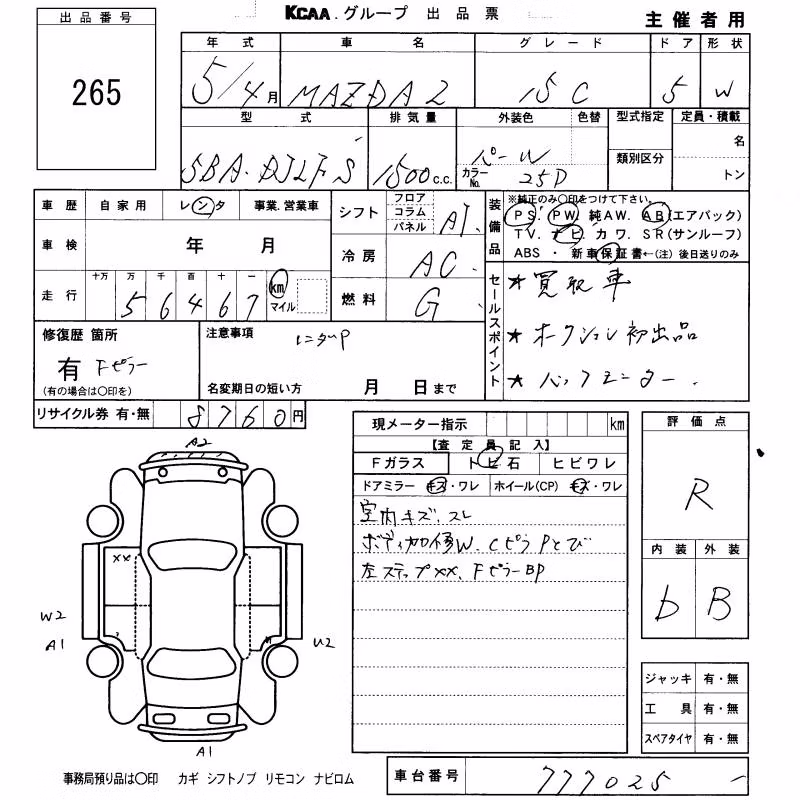 出品番号
265
KCAA.グループ 出品票
主催者用
年式 車名 グレード ドア 形状
5/4月 MAZDA2 15C 5 W
型式 排気量 外装色 色替 型式指定 定員・積載
5BA-DJLFS 1500c.c. パールW カラーNo. 25D 類別区分 名 トン
車歴 自家用 レンタ 事業.営業車
車検 年 月
走行 十万 万 千 百 十 一
56467 km マイル
シフト フロア コラム パネル AT
冷房 AC
燃料 G
装備品
※純正のみ〇印をつけて下さい。
PS. PW. 純AW. AB(エアバック)
TV. ナビ. カワ. SR(サンルーフ)
ABS ・ 新車保証書←(注)後日送りのみ
セールスポイント
＊買取車
＊オークション初出品
＊バックモニター
修復歴 箇所
有 Fピラー
(有の場合は〇印を)
注意事項
名変期日の短い方 月 日まで
リサイクル券 有・無 8760円
現メーター指示 km
【査定員記入】
Fガラス トビ石 ヒビワレ
ドアミラー キズ・ワレ ホイール(CP) キズ・ワレ
室内キズ、スレ
ボディ加修W、CピラPとび
左ステップXX、FピラーBP
評価点
R
内装 外装
b B
A2
XX
W2
A1
U2
A1
ジャッキ 有・無
工具 有・無
スペアタイヤ 有・無
事務局預り品は〇印 カギ シフトノブ リモコン ナビロム
車台番号 777025